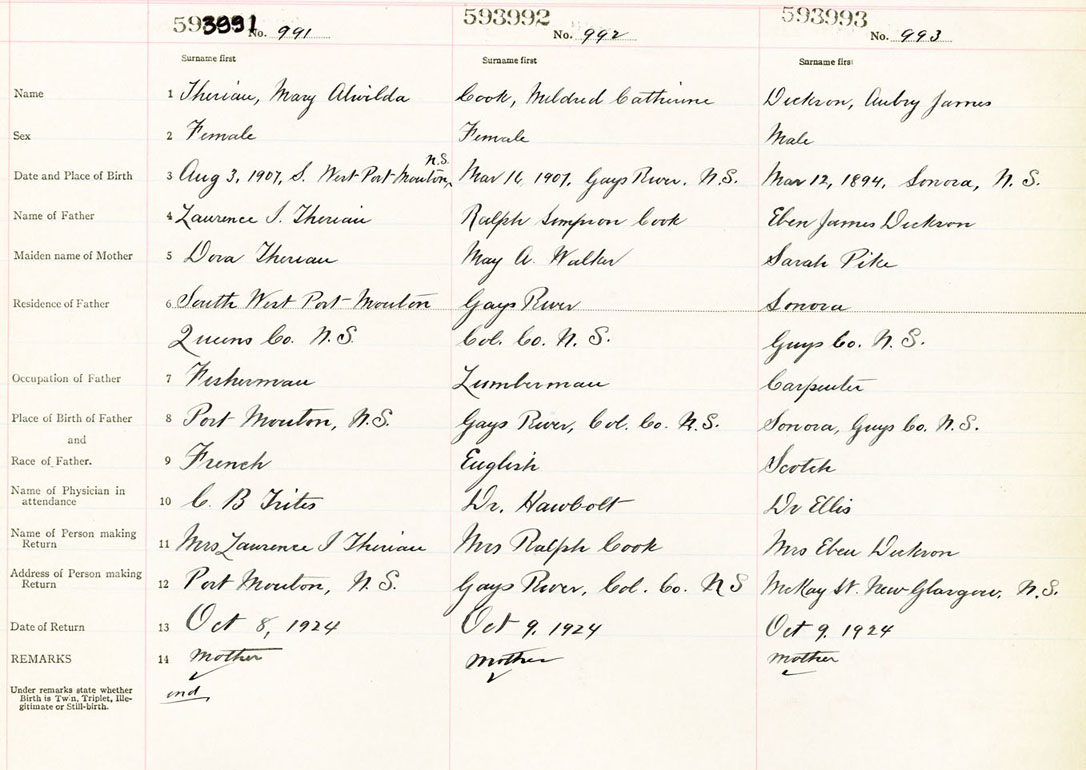 593991 593992 593993
No. 991 No. 992 No. 993
Surname first Surname first Surname first
Name 1 Theriau, Mary Alwilda Cook, Mildred Catherine Dickson, Aubry James
Sex 2 Female Female Male
N.S.
Date and Place of Birth 3 Aug 3, 1907, S. West Port Mouton, Mar 16, 1907, Gays River, N.S. Mar 12, 1894, Sonora, N.S.
Name of Father 4 Laurence I. Theriau Ralph Simpson Cook Eben James Dickson
Maiden name of Mother 5 Dora Theriau May A. Walker Sarah Pike
Residence of Father 6 South West Port Mouton Gays River Sonora
Queens Co. N.S. Col. Co. N.S. Guys Co. N.S.
Occupation of Father 7 Fisherman Lumberman Carpenter
Place of Birth of Father 8 Port Mouton, N.S. Gays River, Col. Co. N.S. Sonora, Guys Co. N.S.
and
Race of Father. 9 French English Scotch
Name of Physician in
attendance 10 C. B Trites Dr. Hawbolt Dr Ellis
Name of Person making
Return 11 Mrs Laurence I Theriau Mrs Ralph Cook Mrs Eben Dickson
Address of Person making
Return 12 Port Mouton, N.S. Gays River, Col. Co. N S McKay St. New Glasgow, N.S.
Date of Return 13 Oct 8, 1924 Oct 9. 1924 Oct 9. 1924
REMARKS 14 Mother Mother Mother
Under remarks state whether
Birth is Twin, Triplet, Ille-
gitimate or Still-birth.